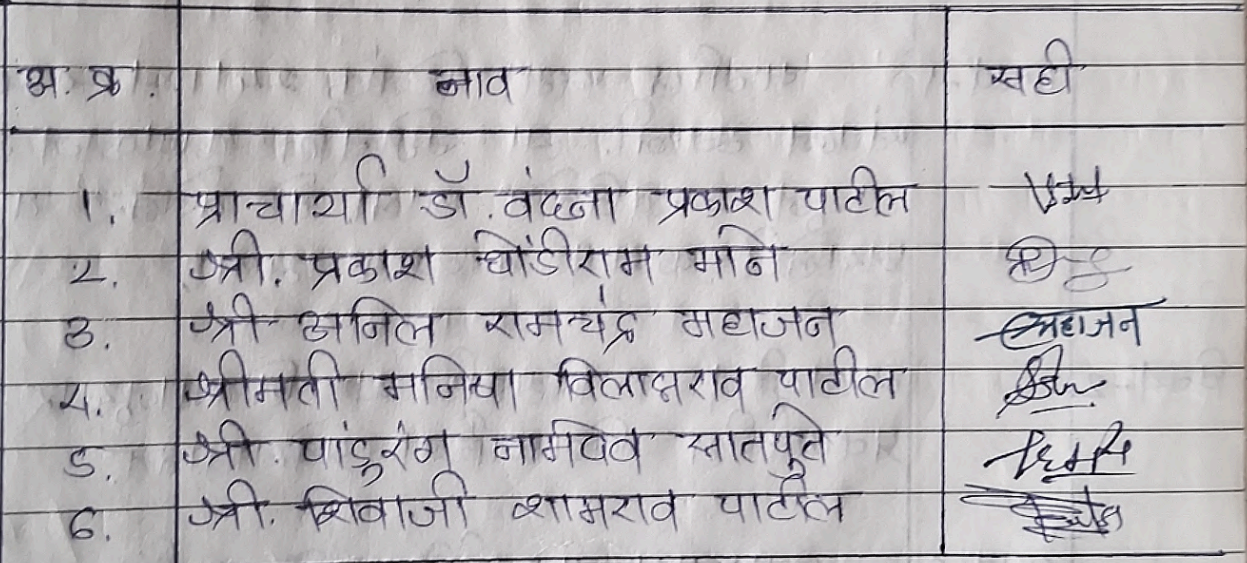 अ. क्र. नाव सही
1. प्राचार्या डॉ. वंदना प्रकाश पाटील
2. श्री. प्रकाश धोंडीराम माने
3. श्री अनिल रामचंद्र महाजन महाजन
4. श्रीमती मनिषा विलासराव पाटील
5. श्री. पांडुरंग नामदेव सातपुते
6. श्री. शिवाजी शामराव पाटील